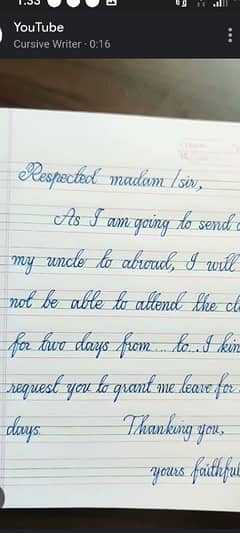 1:33
YouTube
Cursive Writer · 0:16
Respected madam / sir,
As I am going to send
my uncle to abroad, I will
not be able to attend the
for two days from ... to... I
request you to grant me leave for
days. Thanking you,
yours